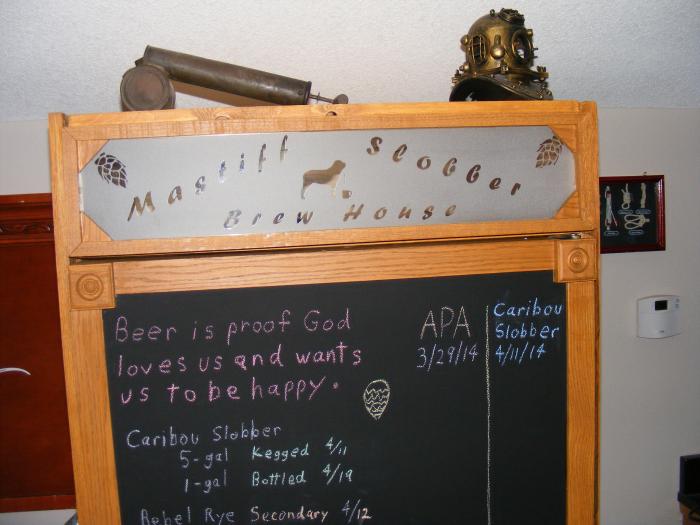 Mastiff Slobber
Brew House
Beer is proof God
loves us and wants
us to be happy.
APA
3/29/14
Caribou
Slobber
4/11/14
Caribou Slobber
5-gal Kegged 4/11
1-gal Bottled 4/19
Rebel Rye Secondary 4/12